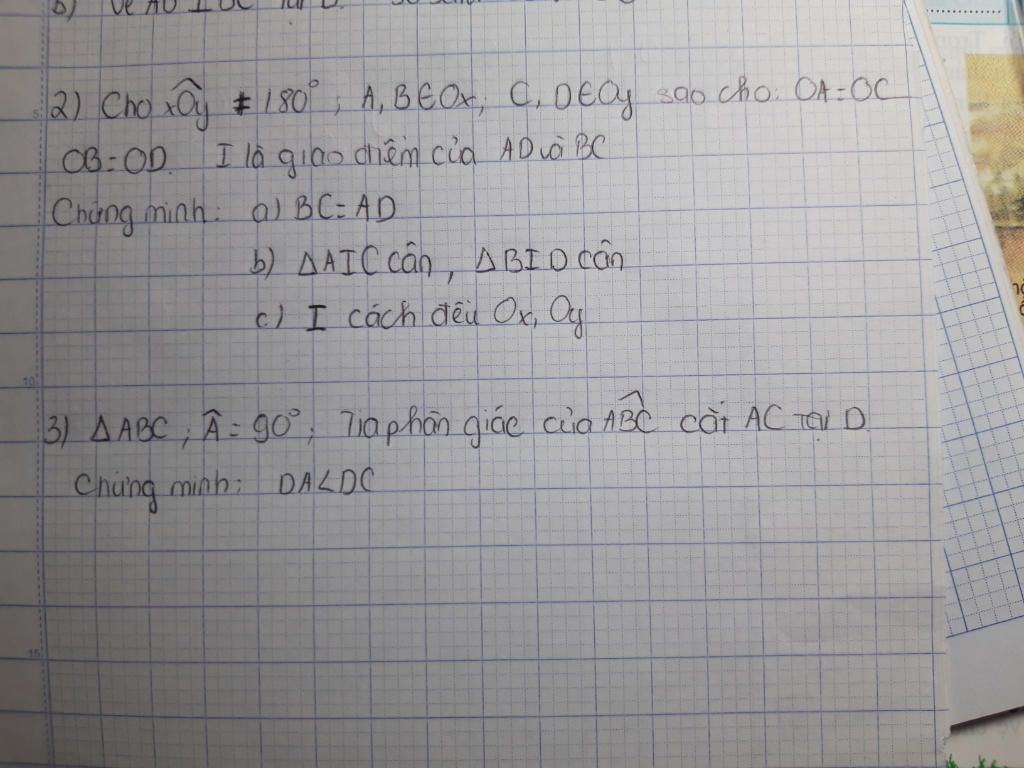 b) Vẽ AD ⊥ BC tại D.
2) Cho xÔy ≠ 180°; A, B ∈ Ox, C, D ∈ Oy sao cho: OA = OC
OB = OD. I là giao điểm của AD và BC
Chứng minh: a) BC = AD
b) ΔAIC cân, ΔBID cân
c) I cách đều Ox, Oy
3) ΔABC; Â = 90°; Tia phân giác của ABC cắt AC tại D.
Chứng minh: DA < DC